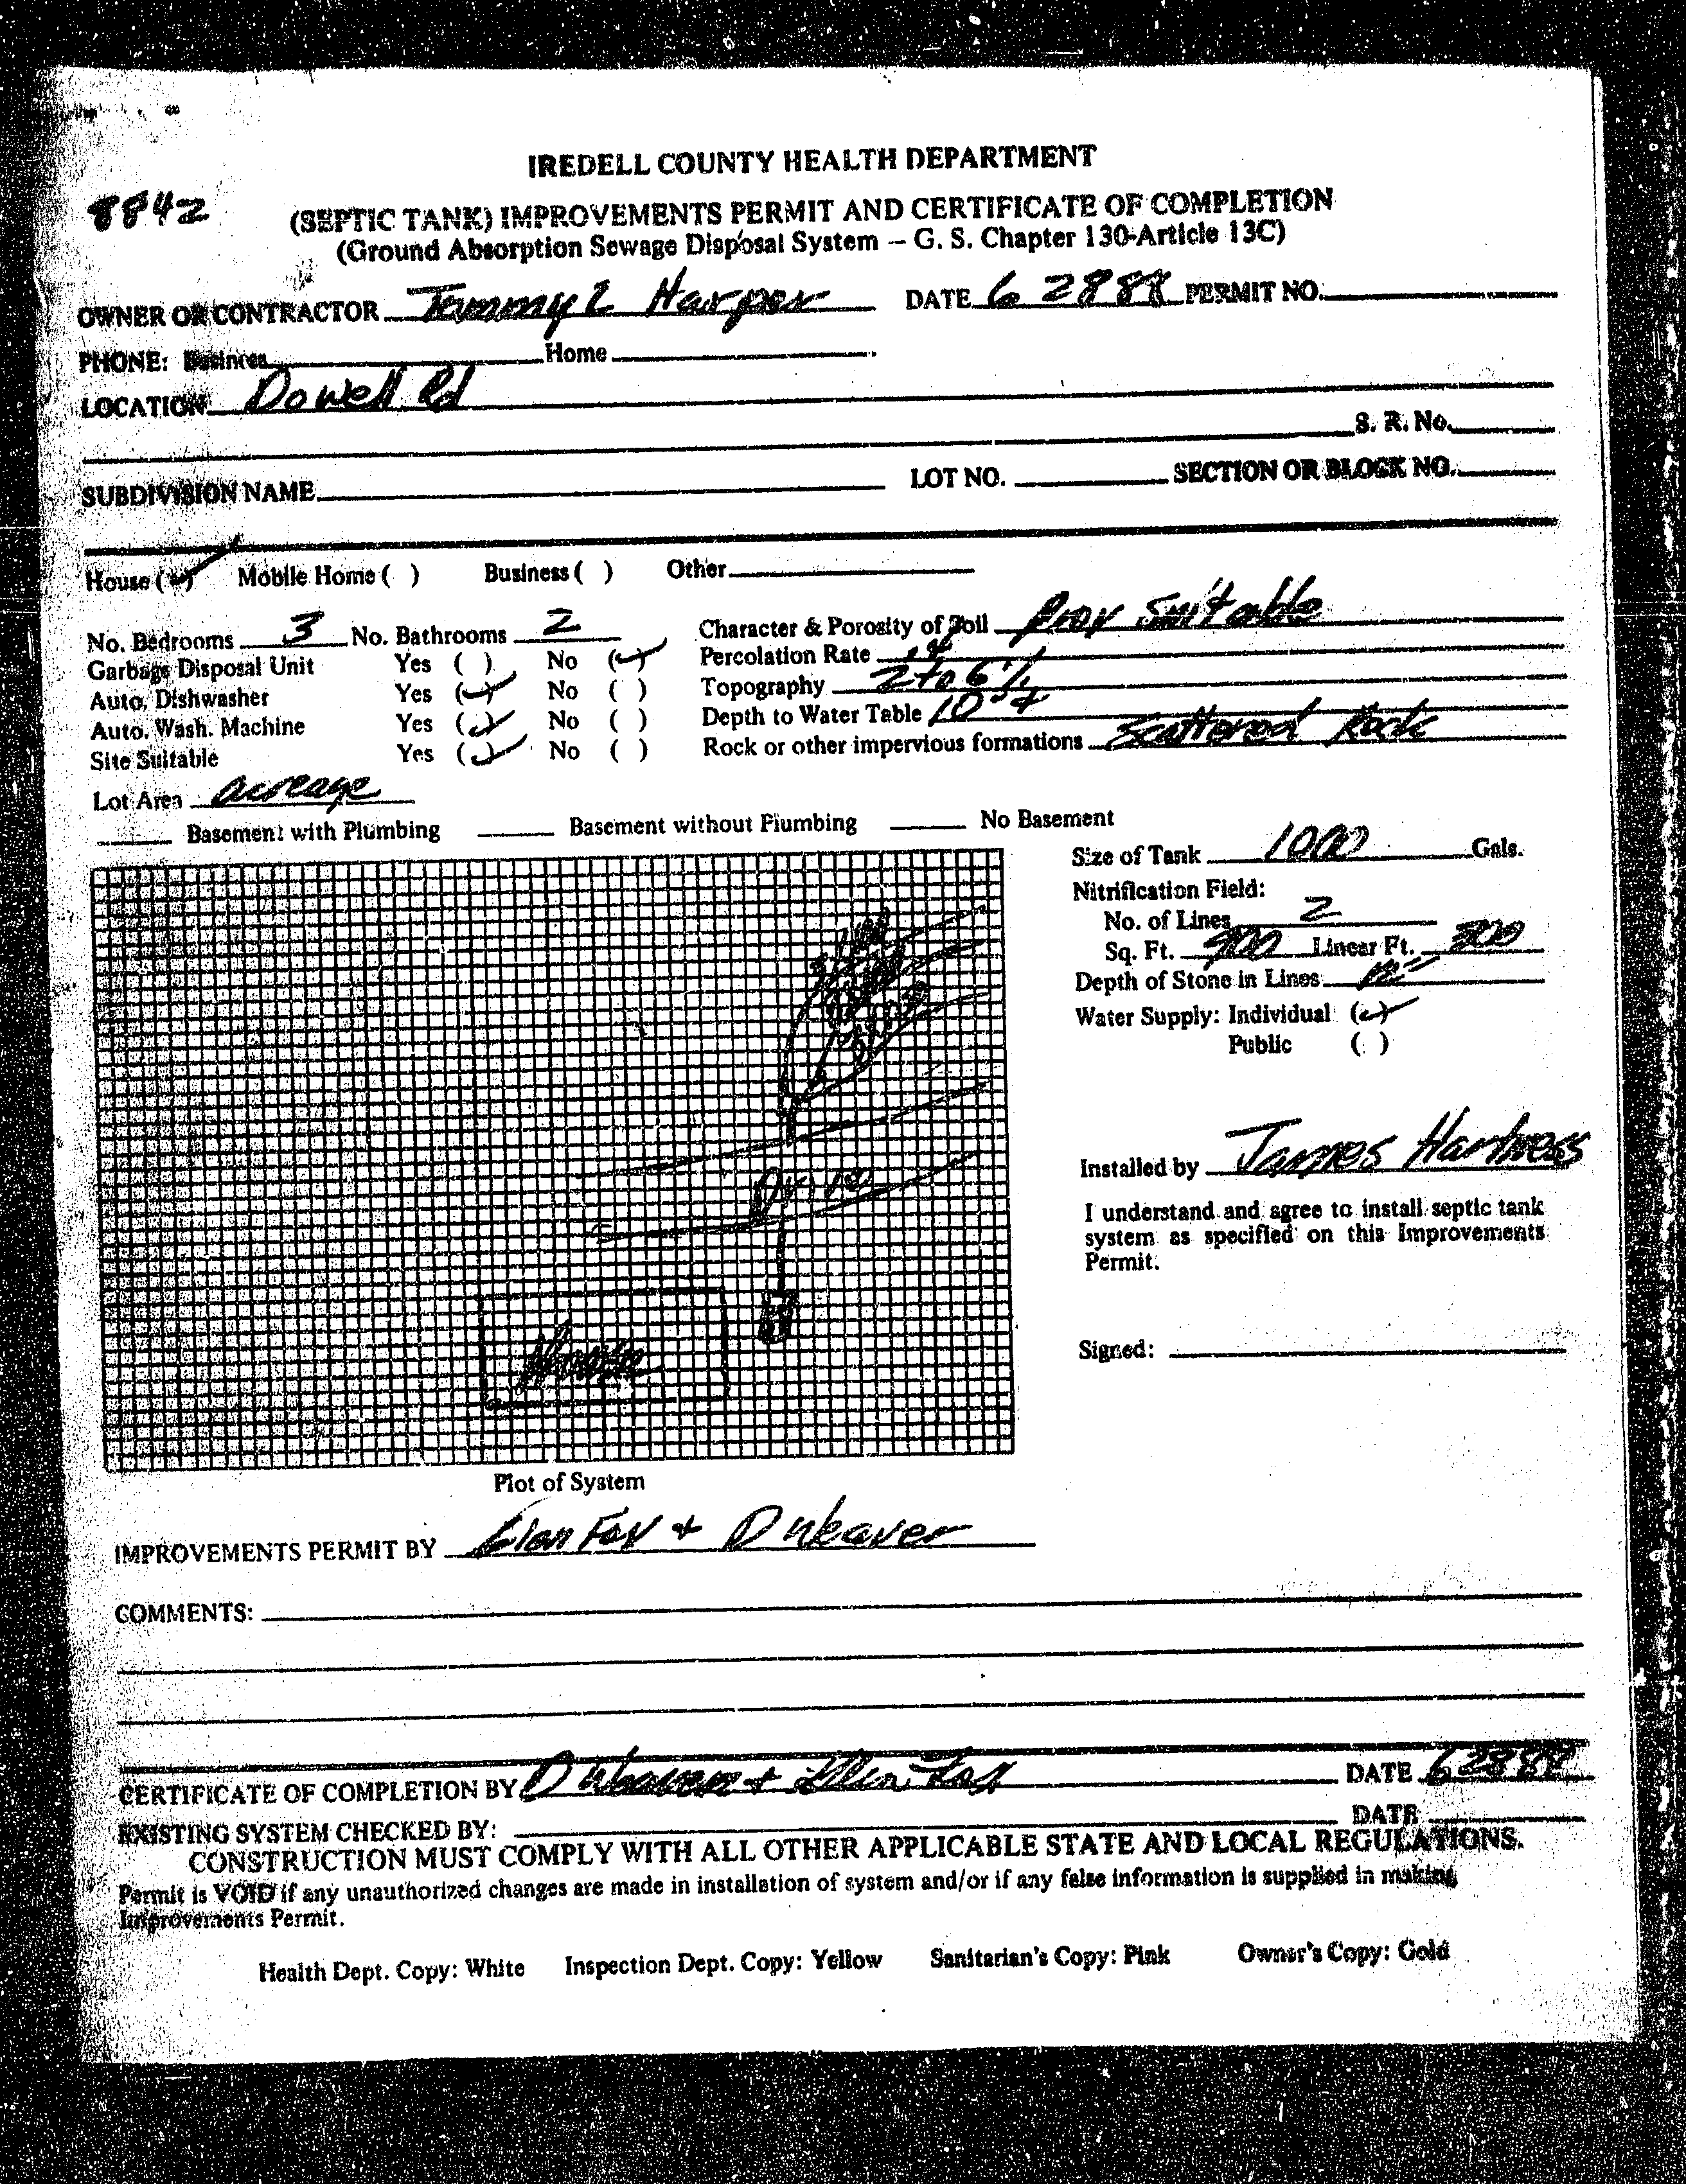 IREDELL COUNTY HEALTH DEPARTMENT
8842
(SEPTIC TANK) IMPROVEMENTS PERMIT AND CERTIFICATE OF COMPLETION
(Ground Absorption Sewage Disposal System – G. S. Chapter 130-Article 13C)
OWNER OR CONTRACTOR Tommy L Harper DATE 6 28 88 PERMIT NO.
PHONE: Business Home
LOCATION Dowell Rd
S. R. No.
SUBDIVISION NAME LOT NO. SECTION OR BLOCK NO.
House (✓) Mobile Home ( ) Business ( ) Other
No. Bedrooms 3 No. Bathrooms 2 Character & Porosity of Soil Prov Suitable
Garbage Disposal Unit Yes ( ) No (✓) Percolation Rate .4
Auto. Dishwasher Yes (✓) No ( ) Topography 2 to 6%
Auto. Wash. Machine Yes (✓) No ( ) Depth to Water Table 10'+
Site Suitable Yes (✓) No ( ) Rock or other impervious formations Scattered Rock
Lot Area acreage
Basement with Plumbing Basement without Plumbing No Basement
Size of Tank 1000 Gals.
Nitrification Field:
No. of Lines 2
Sq. Ft. 900 Linear Ft. 300
Depth of Stone in Lines 12"
Water Supply: Individual (✓)
Public ( )
Drive
House
Installed by James Hartness
I understand and agree to install septic tank
system as specified on this Improvements
Permit.
Signed:
Plot of System
IMPROVEMENTS PERMIT BY Fox + D Weaver
COMMENTS:
CERTIFICATE OF COMPLETION BY D Weaver + Fox DATE 6 28 88
EXISTING SYSTEM CHECKED BY: DATE
CONSTRUCTION MUST COMPLY WITH ALL OTHER APPLICABLE STATE AND LOCAL REGULATIONS.
Permit is VOID if any unauthorized changes are made in installation of system and/or if any false information is supplied in making
Improvements Permit.
Health Dept. Copy: White Inspection Dept. Copy: Yellow Sanitarian's Copy: Pink Owner's Copy: Gold